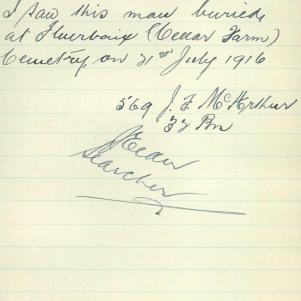 I saw this man buried
at Fluerbaix (Cellar Farm)
Cemetry on 21st July 1916
569 J. F. McArthur
32 Bn
Searcher